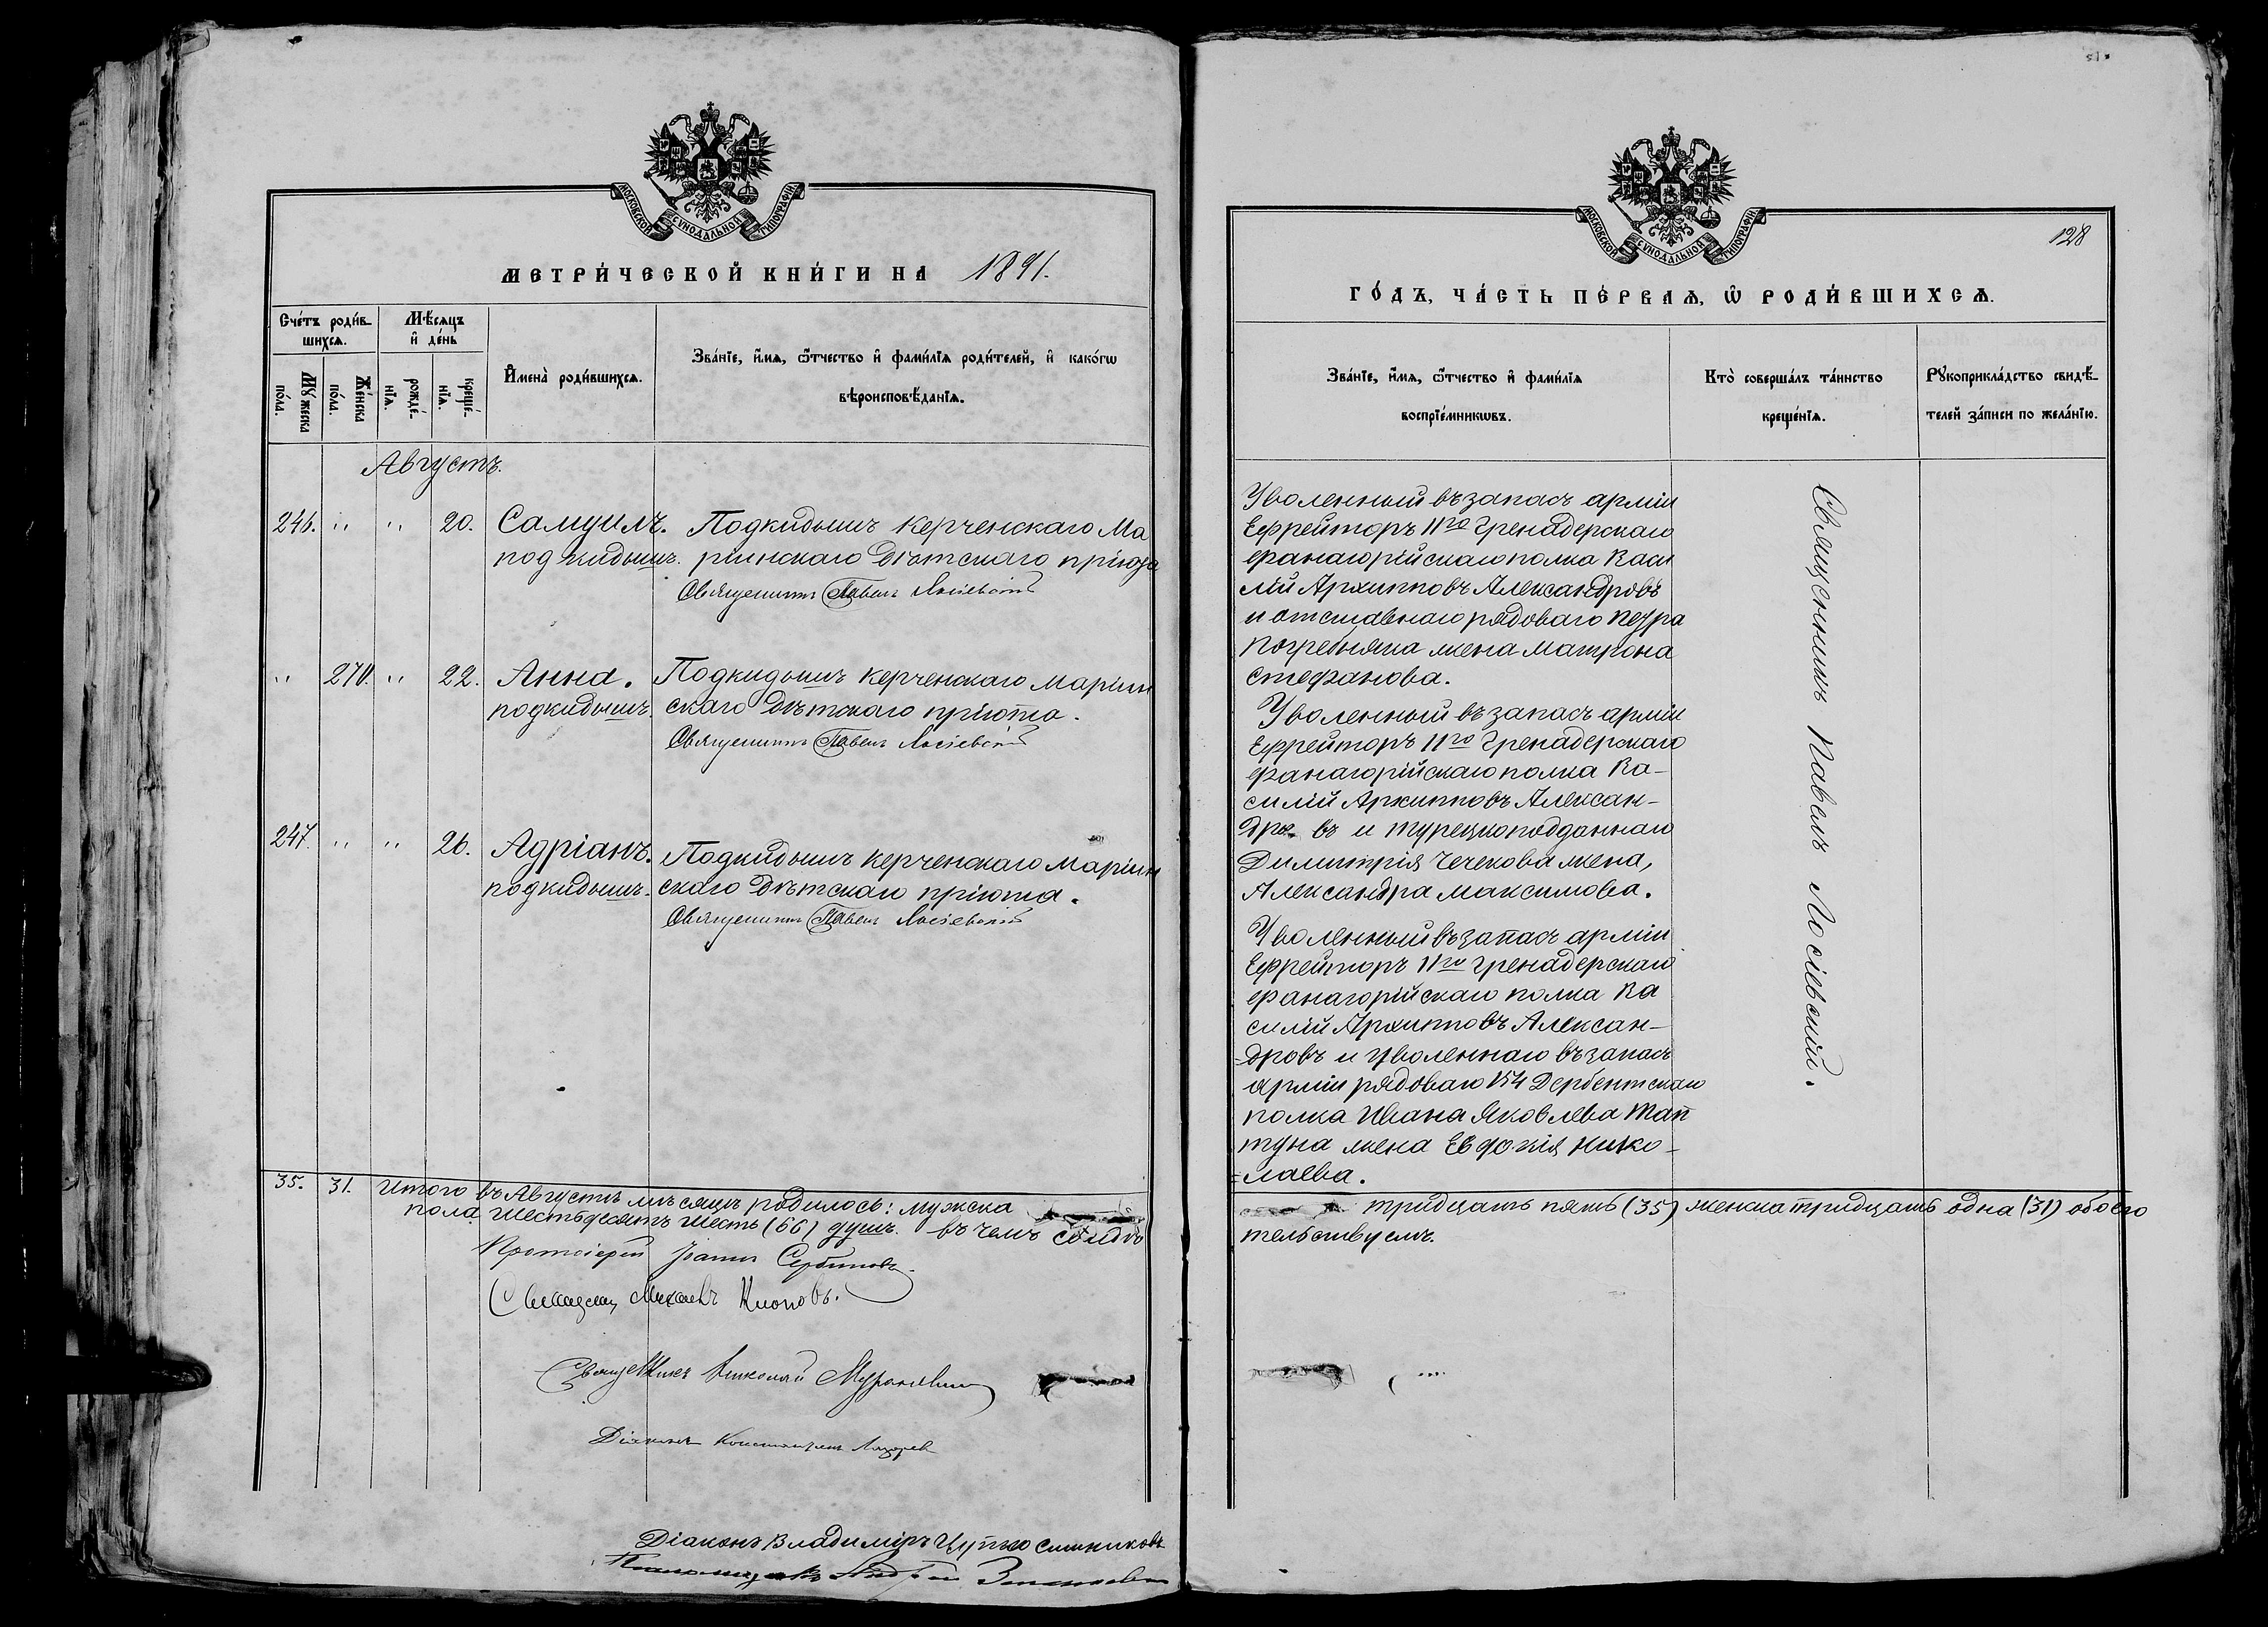 МОСКОВСКОЙ СѴНОДАЛЬНОЙ ТИПОГРАФІИ.
МЕТРИ́ЧЕСКОЙ КНИ́ГИ НА 1891.
Сче́тъ роди́в-
шихсѧ.
Мѣ́сѧцъ
и҆ де́нь
Мꙋ́жеска
по́ла.
Же́нска
по́ла.
рожде́-
нїѧ.
креще́-
нїѧ.
И҆мена̀ роди́вшихсѧ.
Зва́нїе, и҆́мѧ, ѻ҆́тчество и҆ фами́лїѧ роди́телей, и҆ како́гѡ
вѣроисповѣ́данїѧ.
Августъ.
246. " " 20. Самуилъ. Подкидышъ Керченскаго Ма
подкидышъ. ріинскаго Дѣтскаго пріюта
Священникъ Павелъ Лосіевскій
" 270. " 22. Анна. Подкидышъ Керченскаго Маріин
подкидышъ. скаго Дѣтскаго пріюта.
Священникъ Павелъ Лосіевскій
247. " " 26. Адріанъ. Подкидышъ Керченскаго Маріин
подкидышъ. скаго Дѣтскаго пріюта.
Священникъ Павелъ Лосіевскій
35. 31. Итого въ Августѣ мѣсяцѣ родилось: мужска
пола шестьдесятъ шесть (66) душъ. въ чемъ свидѣ
Протоіерей Іоаннъ Сербиновъ.
Священникъ Михаилъ Клоповъ.
Священникъ Николай
Діаконъ Константинъ Лазарев
Діаконъ Владиміръ
Псаломщикъ Андрей
МОСКОВСКОЙ СѴНОДАЛЬНОЙ ТИПОГРАФІИ.
128
ГО́ДЪ, ЧА́СТЬ ПЕ́РВАѦ, Ѡ҆ РОДИ́ВШИХСѦ.
Зва́нїе, и҆́мѧ, ѻ҆́тчество и҆ фами́лїѧ
воспрїе́мникѡвъ.
Кто̀ соверша́лъ та́инство
креще́нїѧ.
Рꙋкоприкла́дство свидѣ́-
телей за́писи по жела́нїю.
Уволенный въ запасъ арміи
Ефрейторъ 11го Гренадерскаго
Фанагорійскаго полка Васи
лій Архипповъ Александровъ
и отставнаго рядоваго Петра
Погребняка жена Матрона
Стефанова.
Уволенный въ запасъ арміи
Ефрейторъ 11го Гренадерскаго
Фанагорійскаго полка Ва-
силій Архипповъ Алексан-
дровъ и турецкоподданнаго
Димитрія Чечекова жена,
Александра Максимова.
Уволенный въ запасъ арміи
Ефрейторъ 11го Гренадерскаго
Фанагорійскаго полка Ва
силій Архипповъ Алексан-
дровъ и уволеннаго въ запасъ
арміи рядоваго 154 Дербентскаго
полка Ивана Яковлева Тап
туна жена Евдокія Нико-
лаева.
Священникъ Павелъ Лосіевскій.
тридцать пять (35) женска тридцать одна (31) обоего
тельствуемъ.